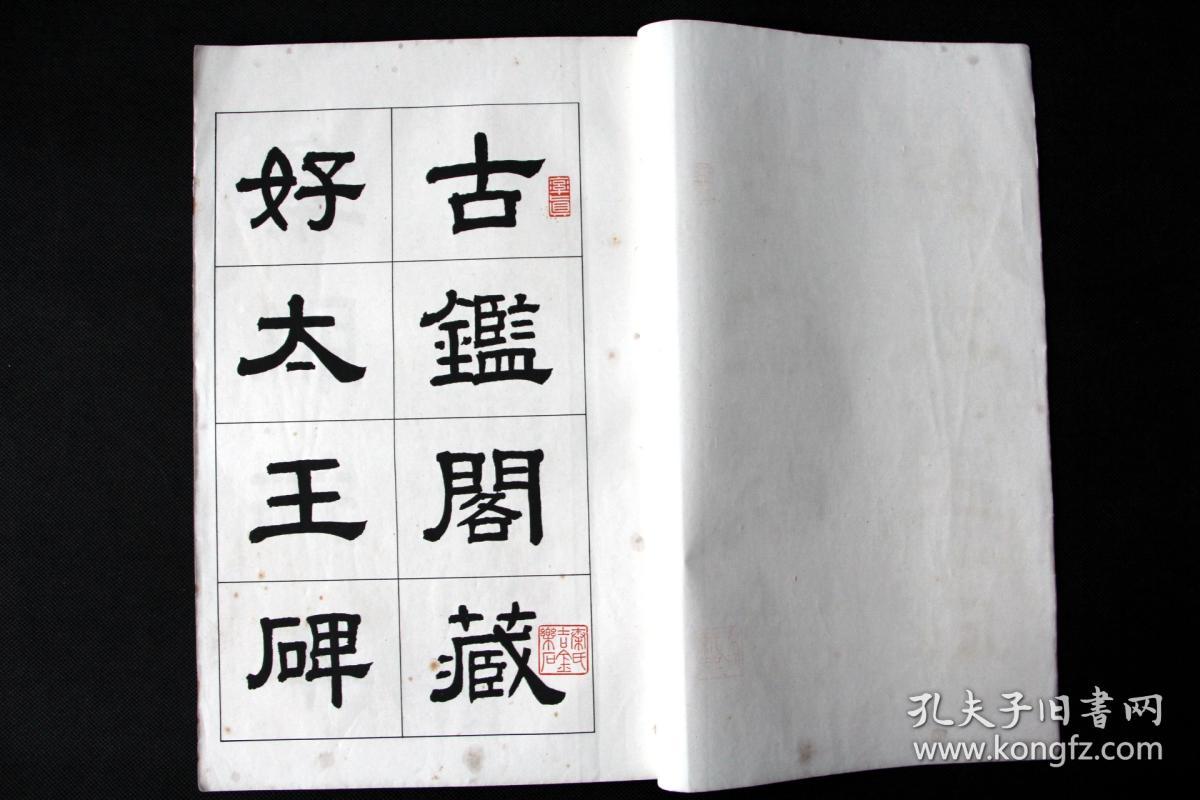 古鑑閣藏
好太王碑
秦氏
吉金
樂石
孔夫子旧書网
www.kongfz.com